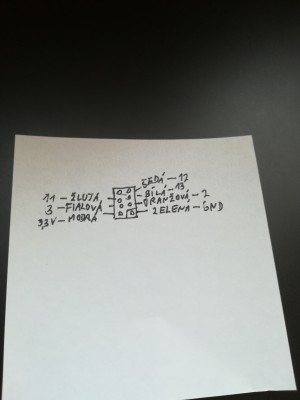 ŠEDÁ - 12
11 - ŽLUTÁ
BÍLÁ - 13
3 - FIALOVÁ
ORANŽOVÁ - 2
3,3V - MODRÁ
ZELENÁ - GND